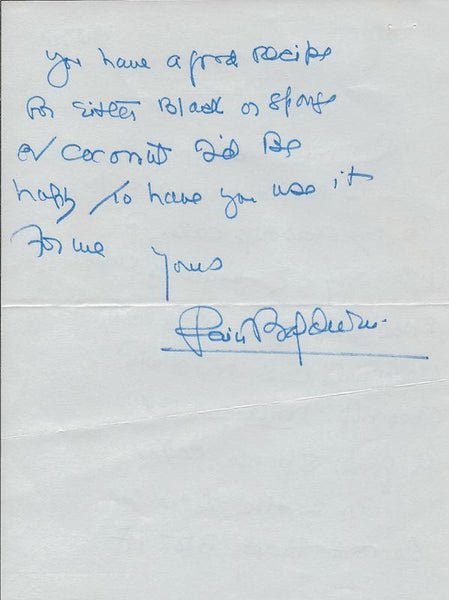 you have a good recipe
for either Black or sponge
or coconut I'd be
happy to have you use it
for me
Yours
Faith Baldwin